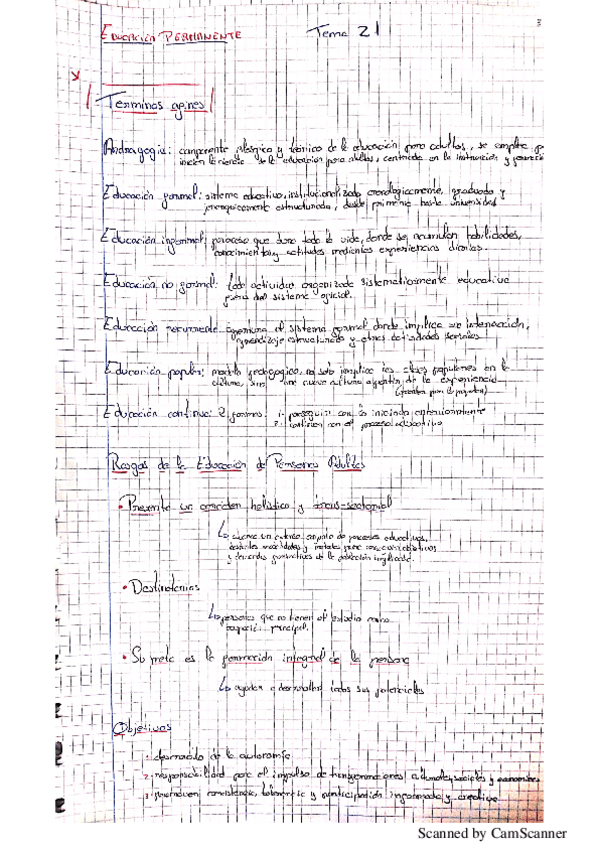 Educación Permanente Tema 21
Terminos afines
Andragogia: componente filosófico y teórico de la educación para adultos, se emplea
la ciencia de la educación para adultos, centrada en la instrucción y
Educación formal: sistema educativo, institucionalizado cronologicamente, graduado y
jerarquicamente estructurado, desde primaria hasta universidad
Educación informal: proceso que dura toda la vida, donde se acumulan habilidades,
conocimientos y actitudes mediantes experiencias diarias.
Educación no formal: toda actividad organizada sistematicamente educativa
fuera del sistema oficial.
Educación recurrente: el sistema formal donde implica una interacción,
aprendizaje estructurado y otras actividades
Educación popular: modelo pedagogico, no solo implica las clases populares en la
cultura, sino una nueva cultura a partir de la experiencia
Educación continua: 2 formas: 1- perseguir con lo iniciado
2- continuar con el proceso educativo
Rasgos de la Educación de Personas Adultas
• Presenta un caracter holístico y trans-sectorial
↳ abarca un extenso conjunto de procesos educativos,
y demandas formativas de la población implicada.
• Destinatarios
↳ personas que no tienen el estudio como
ocupació principal.
• Su meta es la formación integral de la persona
↳ ayudar a desarrollar todos sus potenciales
Objetivos
1. desarrollo de la autonomía
2. responsabilidad por el impulso de transformaciones culturales, sociales y
3. promover coexistencia, tolerancia y participación informada y creativa
Scanned by CamScanner